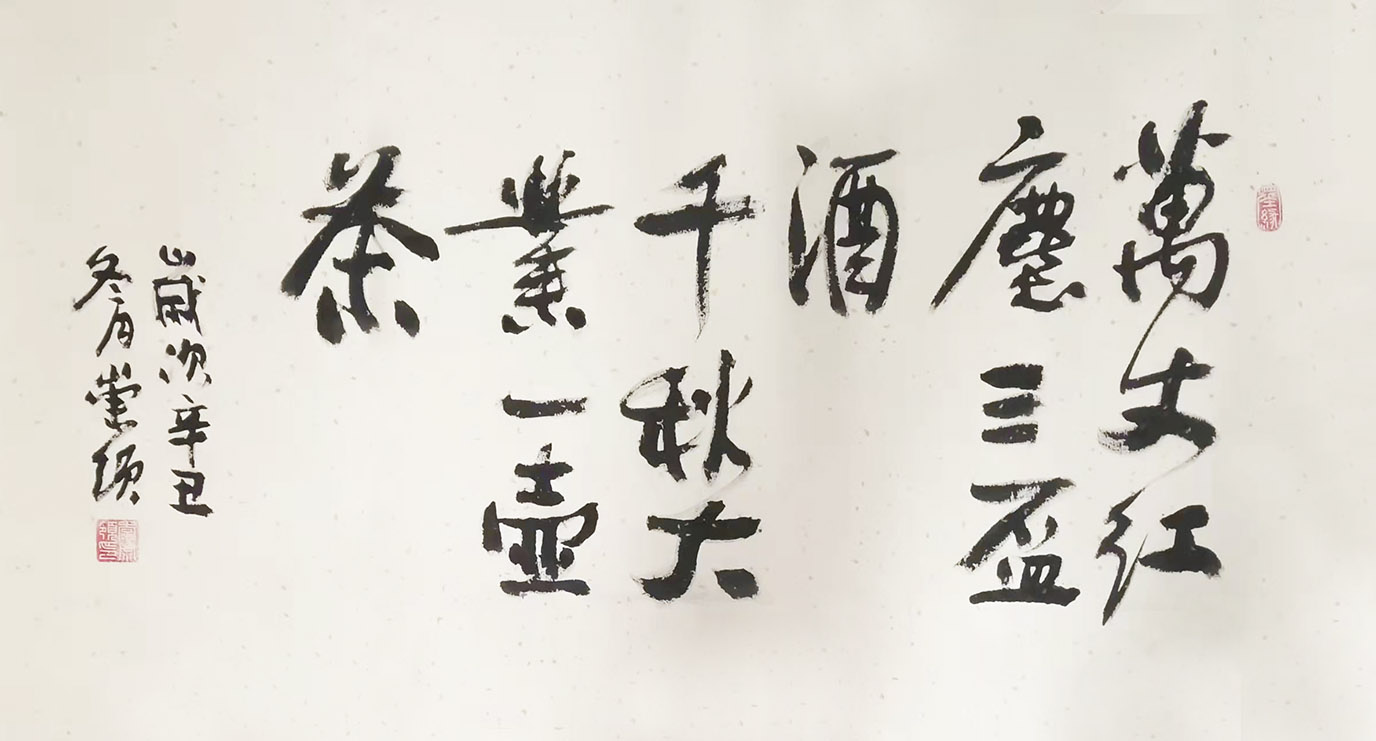 萬丈红
塵三盃
酒
千秋大
業一壶
茶
歲次辛丑
冬月崇頌